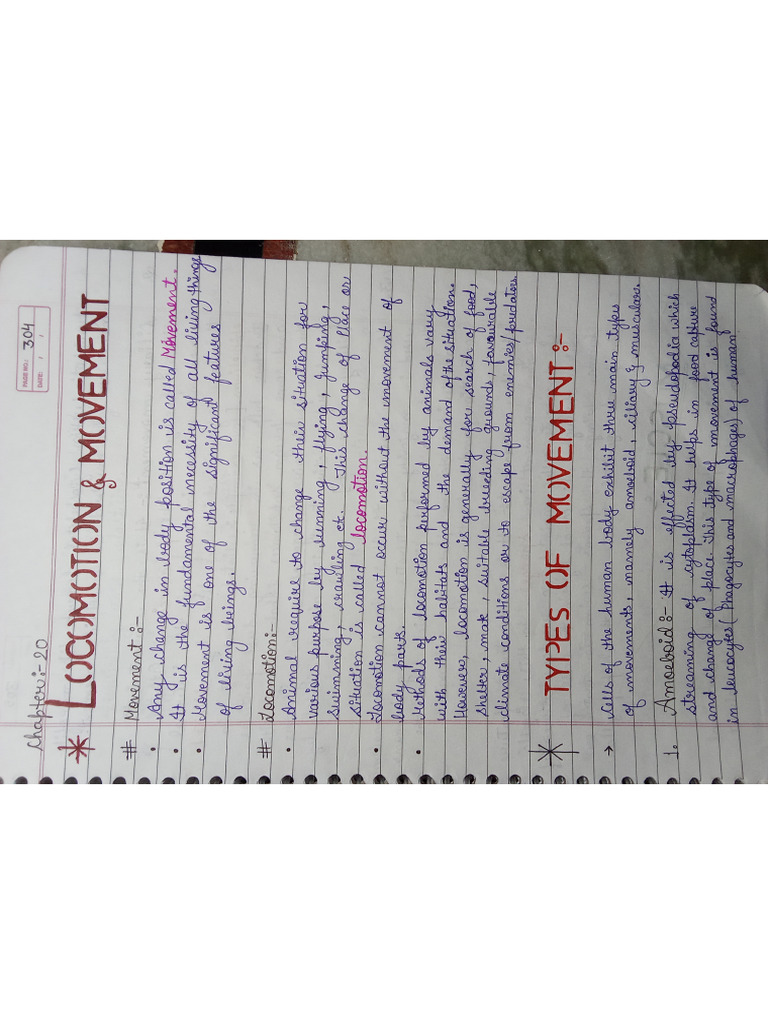 PAGE NO.: 304
DATE: / /
Chapter:- 20
* LOCOMOTION & MOVEMENT
# Movement :-
• Any change in body position is called Movement.
• It is the fundamental necessity of all living things
• Movement is one of the significant features
of living beings.
# Locomotion:-
• Animal require to change their situation for
various purpose by running, flying, jumping,
swimming, crawling et. This change of Place or
situation is called locomotion.
• Locomotion cannot occur without the movement of
body parts.
• Methods of locomotion performed by animals vary
with their habitats and the demand of the situation.
However, locomotion is generally for search of food,
shelter, mate, suitable breeding grounds, favourable
climate conditions or to escape from enemies/predators.
* TYPES OF MOVEMENT:-
→ Cells of the human body exhibit three main types
of movements, namely amoeboid, ciliary & muscular.
1. Amoeboid:- It is effected by pseudopodia which
streaming of cytoplasm. It helps in food capture
and change of place. This type of movement is found
in leucocytes (Phagocytes and macrophages) of human